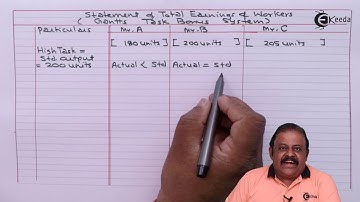 Statement of Total Earnings of Workers
(Gantts Task Bonus System)
Particulars Mr. A Mr. B Mr. C
[180 units] [200 units] [205 units]
High Task = 
Std. Output
= 200 units Actual < Std Actual = Std
Ekeeda